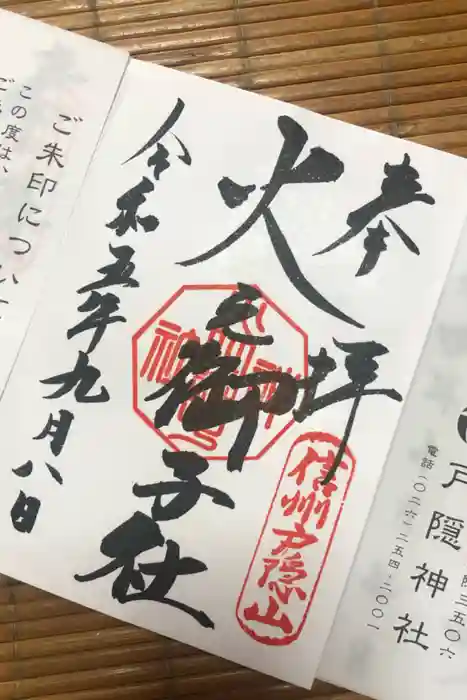 奉拝
火之御子社
令和五年九月八日
信州戸隠山
ご朱印について
この度は、
戸隠神社
電話〇二六-二五四-二〇〇一
三五〇六